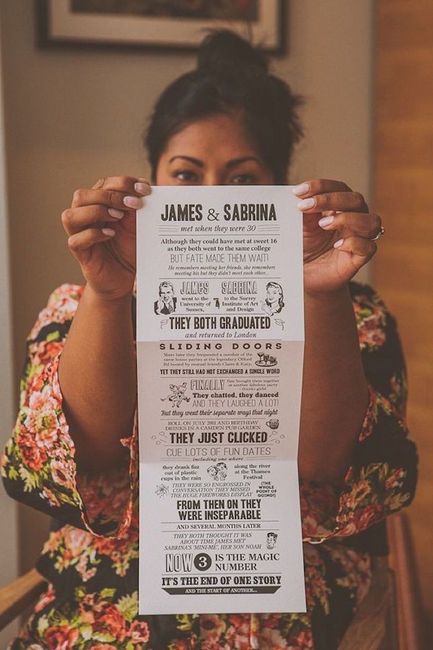 JAMES & SABRINA
met when they were 30
Although they could have met at sweet 16
as they both went to the same college
BUT FATE MADE THEM WAIT!
He remembers meeting her friends, she remembers
meeting his but they didn't meet each other...
JAMES
went to the
University of
Sussex,
SABRINA
went to the Surrey
Institute of Art
and Design
THEY BOTH GRADUATED
and returned to London
SLIDING DOORS
Years later they frequented a number of the
same house parties at the legendary
hosted by mutual friends Claire & Katy,
YET THEY STILL HAD NOT EXCHANGED A SINGLE WORD
FINALLY
fate brought them together
at another fabulous party
thanks girls!
They chatted, they danced
AND THEY LAUGHED A LOT!
But they went their separate ways that night
ROLL ON JULY 2011 AND BIRTHDAY
DRINKS IN A CAMDEN PUB GARDEN
THEY JUST CLICKED
CUE LOTS OF FUN DATES
including one where
they drank fizz
out of plastic
cups in the rain
along the river
at the Thames
Festival
THEY WERE SO ENGROSSED IN
CONVERSATION THEY MISSED
THE HUGE FIREWORKS DISPLAY
(THE WHOLE
POINT OF
GOING!)
FROM THEN ON THEY
WERE INSEPARABLE
AND SEVERAL MONTHS LATER
THEY BOTH THOUGHT IT WAS
ABOUT TIME JAMES MET
SABRINA'S 'MINI-ME', HER SON NOAH
NOW 3 IS THE MAGIC
NUMBER
IT'S THE END OF ONE STORY
AND THE START OF ANOTHER...